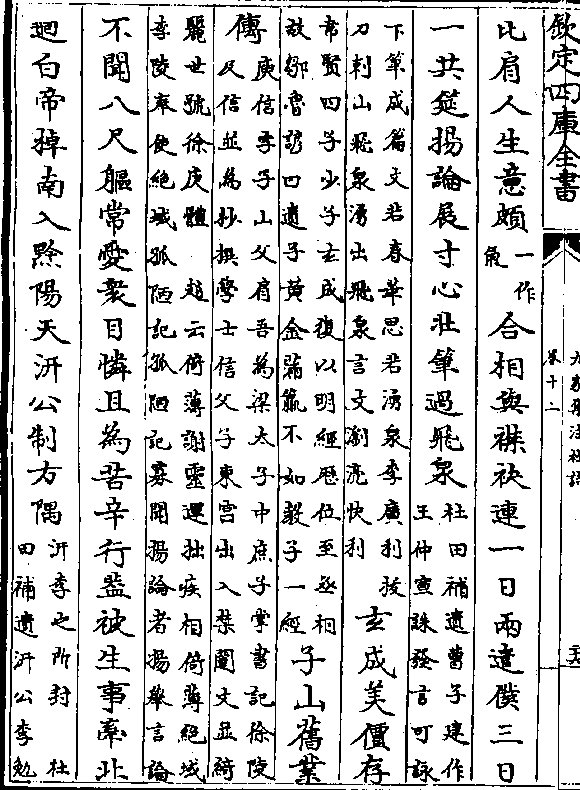 欽定四庫全書
九家集注杜詩
卷十二
比肩人生意頗一作氣合相與襟袂連一日兩遣僕三日
一共筵揚論展寸心壯筆過飛泉杜田補遺曹子建作
王仲宣誄發言可詠
下筆成篇文若春華思若湧泉李廣利拔
刀刺山飛泉湧出飛泉言文瀏亮快利玄成美價存
韋賢四子少子玄成復以明經歷位至丞相
故鄒魯諺曰遺子黄金滿籯不如教子一經子山舊業
傳庾信字子山父肩吾為梁太子中庶子掌書記徐陵
及信並為抄撰學士信父子東宮出入禁闥文並綺
麗世號徐庾體 趙云倚薄謝靈運拙疾相倚薄絶域
李陵奉使絶域孤陋記孤陋記寡聞揚論者揚舉言論
不聞八尺軀常愛衆目憐且為苦辛行蓋被生事牽北
迴白帝棹南入黔陽天汧公制方隅汧李之所封 杜
田補遺汧公李勉